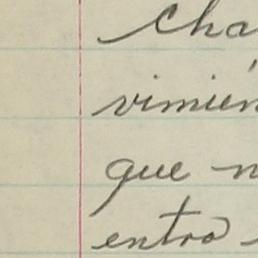 cha
vimien
que n
entro